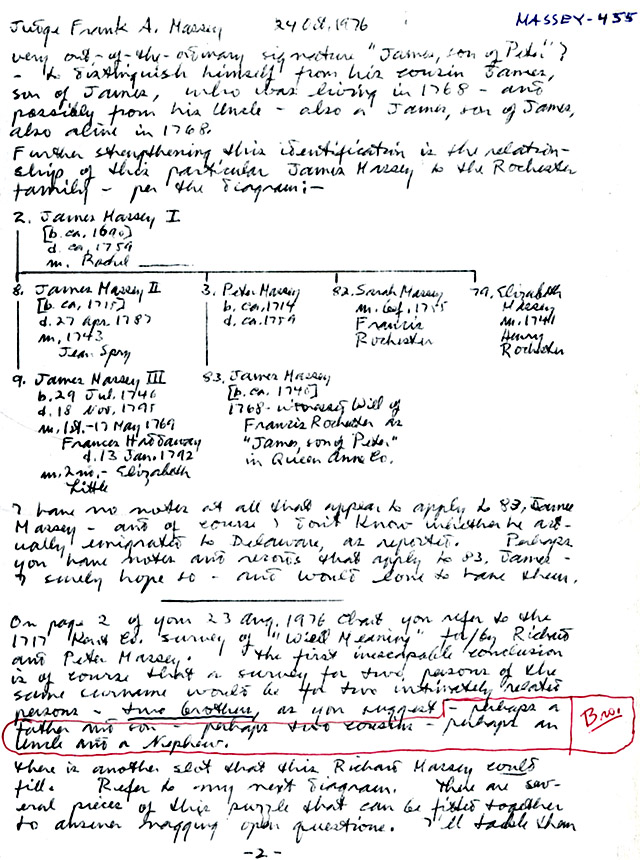 Judge Frank A. Massey 24 Oct. 1976 MASSEY-455
very out-of-the-ordinary signature "James, son of Peter"?
- to distinguish himself from his cousin James,
son of James, who was living in 1768 - and
possibly from his Uncle - also a James, son of James,
also alive in 1768.
Further strengthening this identification is the relation-
ship of this particular James Massey to the Rochester
family - per the diagram:-
2. James Massey I
[b. ca. 1690]
d. ca. 1759
m. Rachel
8. James Massey II
[b. ca. 1715]
d. 27 Apr. 1787
m. 1743
Jean Spry
3. Peter Massey
b. ca. 1714
d. ca. 1759
82. Sarah Massey
m. bef. 1755
Francis
Rochester
79. Elizabeth
Massey
m. 1741
Henry
Rochester
9. James Massey III
b. 29 Jul. 1746
d. 18 Nov. 1795
m. 1st. - 17 May 1769
Frances Haddaway
d. 13 Jan. 1792
m. 2nd. - Elizabeth
Little
83. James Massey
[b. ca. 1740]
1768 - witnessed Will of
Francis Rochester as
"James, son of Peter"
in Queen Anne Co.
I have no notes at all that appear to apply to 83, James
Massey - and of course I don't know whether he act-
ually emigrated to Delaware, as reported. Perhaps
you have notes and records that apply to 83. James -
I surely hope so - and would love to have them.
On page 2 of your 23 Aug. 1976 Chart you refer to the
1717 Kent Co. survey of "Well Meaning" to/by Richard
and Peter Massey. The first inescapable conclusion
is of course that a survey for two persons of the
same surname would be for two intimately related
persons - two brothers, as you suggest - perhaps a
father and son - perhaps two cousins - perhaps an
Uncle and a Nephew.
Bro.
There is another slot that this Richard Massey could
fill. Refer to my next diagram. There are sev-
eral pieces of this puzzle that can be fitted together
to answer nagging open questions. I'll tackle them
-2-